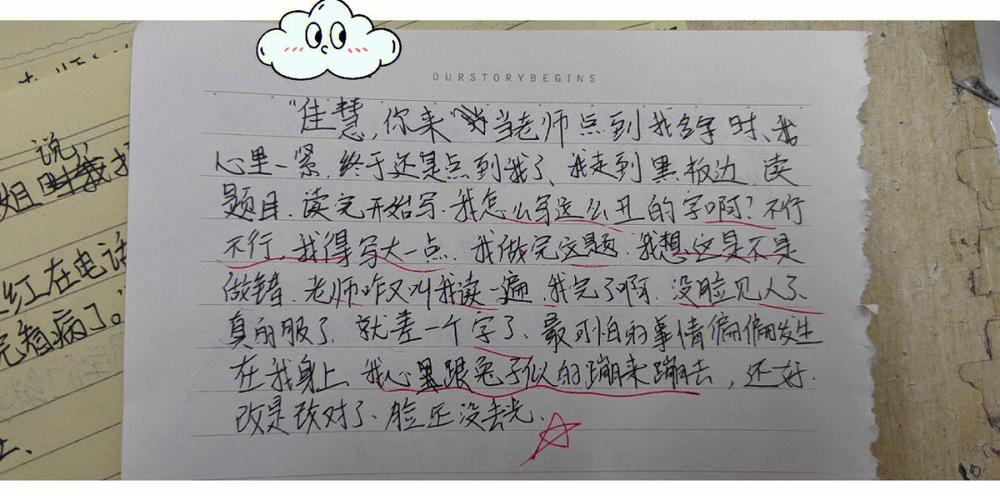 OURSTORYBEGINS
"佳慧,你来"当老师点到我名字时、我
心里一紧.终于还是点到我了、我走到黑板边.读
题目.读完开始写.我怎么写这么丑的字啊?不行
不行,我得写大一点.我做完这题.我想这是不是
做错.老师咋又叫我读一遍.我完了啊.没脸见人了、
真的服了.就差一个字了、最可怕的事情偏偏发生
在我身上、我心里跟兔子似的蹦来蹦去,还好.
改是改对了、脸还没丢光.
说,
姐
红在电话
完 病了。